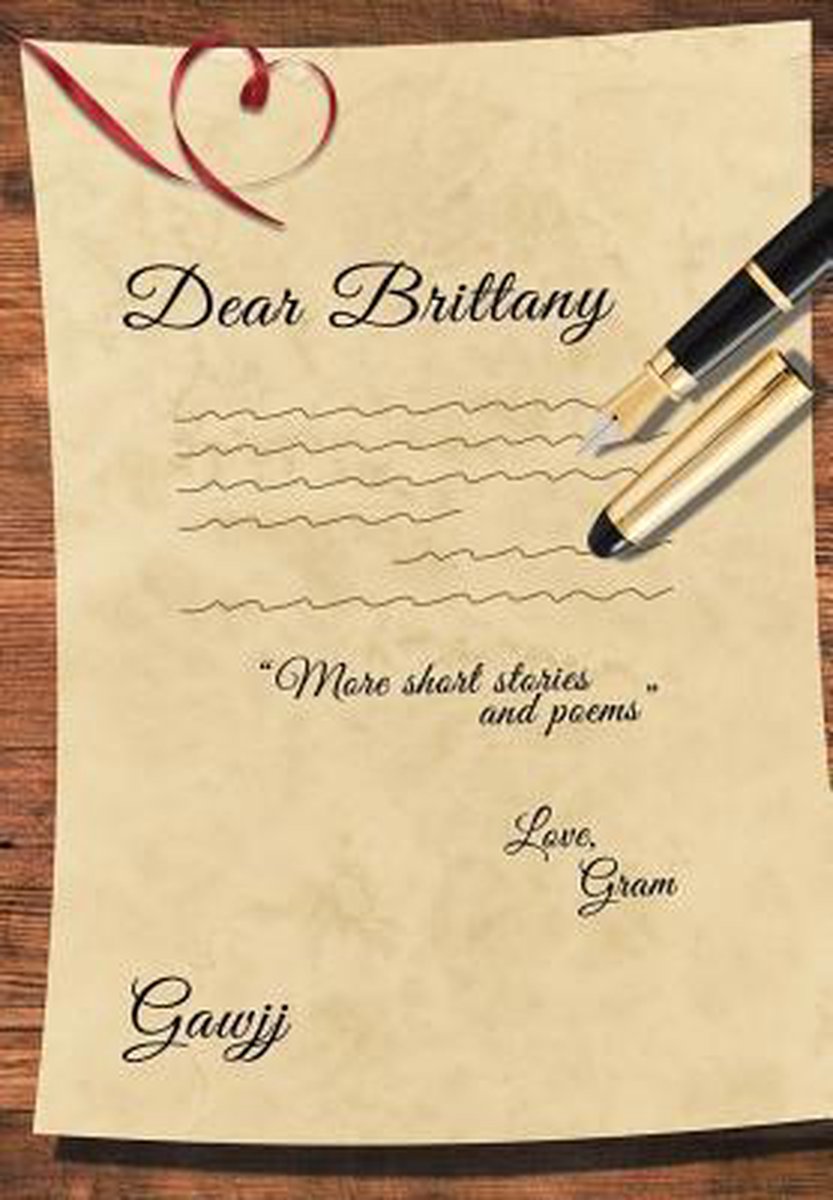 Dear Brittany
“More short stories
and poems”
Love,
Gram
Gawjj